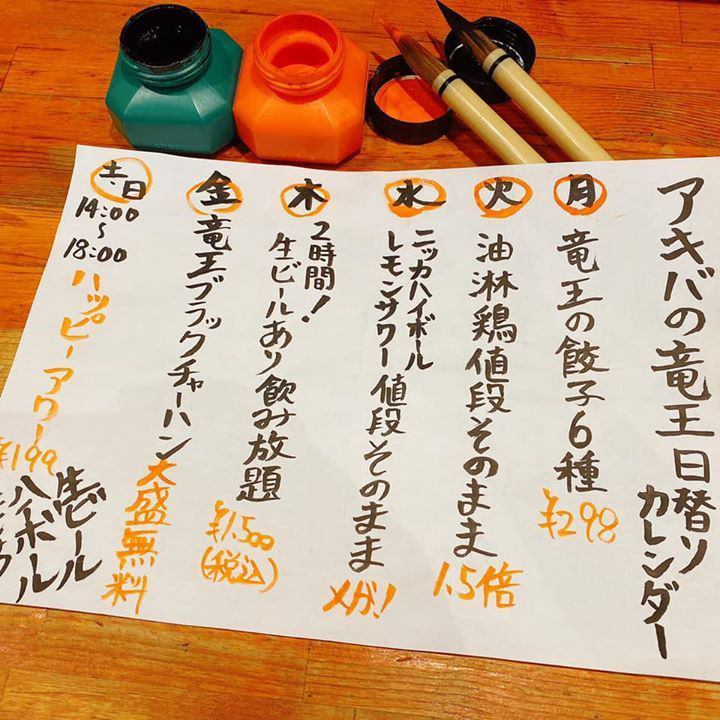 アキバの竜王日替り
カレンダー
月
竜王の餃子6種
¥298
火
油淋鶏値段そのまま
1.5倍
水
ニッカハイボール
レモンサワー
値段そのまま
メガ!
木
2時間!
生ビールあり飲み放題
¥1.500
(税込)
金
竜王ブラックチャーハン
大盛無料
土、日
14:00
~
18:00
ハッピーアワー
¥199
生ビール
ハイボール